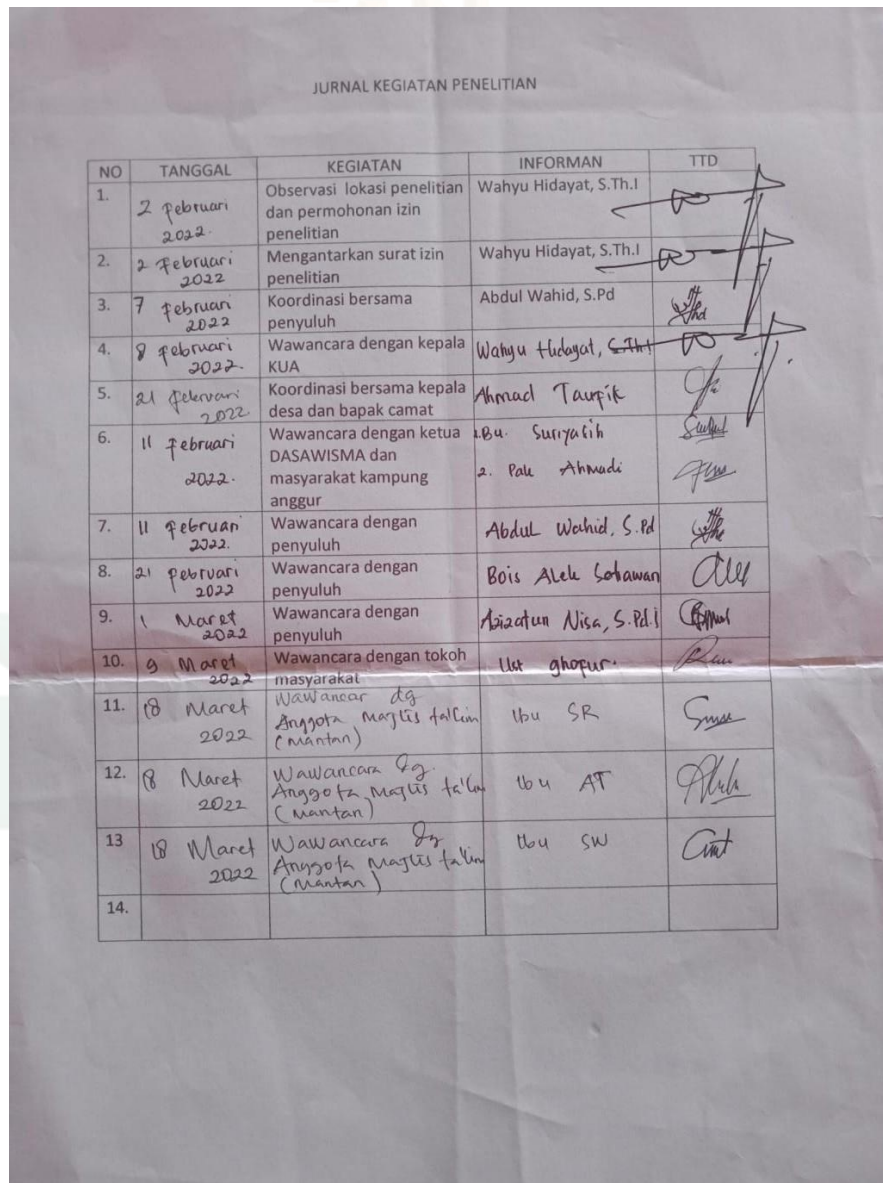 JURNAL KEGIATAN PENELITIAN
NO TANGGAL KEGIATAN INFORMAN TTD
1. 2 Februari 2022. Observasi lokasi penelitian dan permohonan izin penelitian Wahyu Hidayat, S.Th.I
2. 2 Februari 2022 Mengantarkan surat izin penelitian Wahyu Hidayat, S.Th.I
3. 7 Februari 2022 Koordinasi bersama penyuluh Abdul Wahid, S.Pd
4. 8 Februari 2022. Wawancara dengan kepala KUA Wahyu Hidayat, S.Th.I
5. 21 Februari 2022 Koordinasi bersama kepala desa dan bapak camat Ahmad Taufik
6. 11 Februari 2022. Wawancara dengan ketua DASAWISMA dan masyarakat kampung anggur 1.Bu. Suriyatih 2. Pak Ahmadi
7. 11 Februari 2022. Wawancara dengan penyuluh Abdul Wahid, S.Pd
8. 21 Februari 2022 Wawancara dengan penyuluh Bois Alek
9. 1 Maret 2022 Wawancara dengan penyuluh Azizatun Nisa, S.Pd.I
10. 9 Maret 2022 Wawancara dengan tokoh masyarakat Ust ghofur.
11. 18 Maret 2022 Wawancar dg Anggota Majlis ta'lim (mantan) Ibu SR
12. 18 Maret 2022 Wawancara dg. Anggota Majlis ta'lim (mantan) Ibu AT
13 18 Maret 2022 Wawancara dg Anggota Majlis ta'lim (mantan) Ibu SW
14.